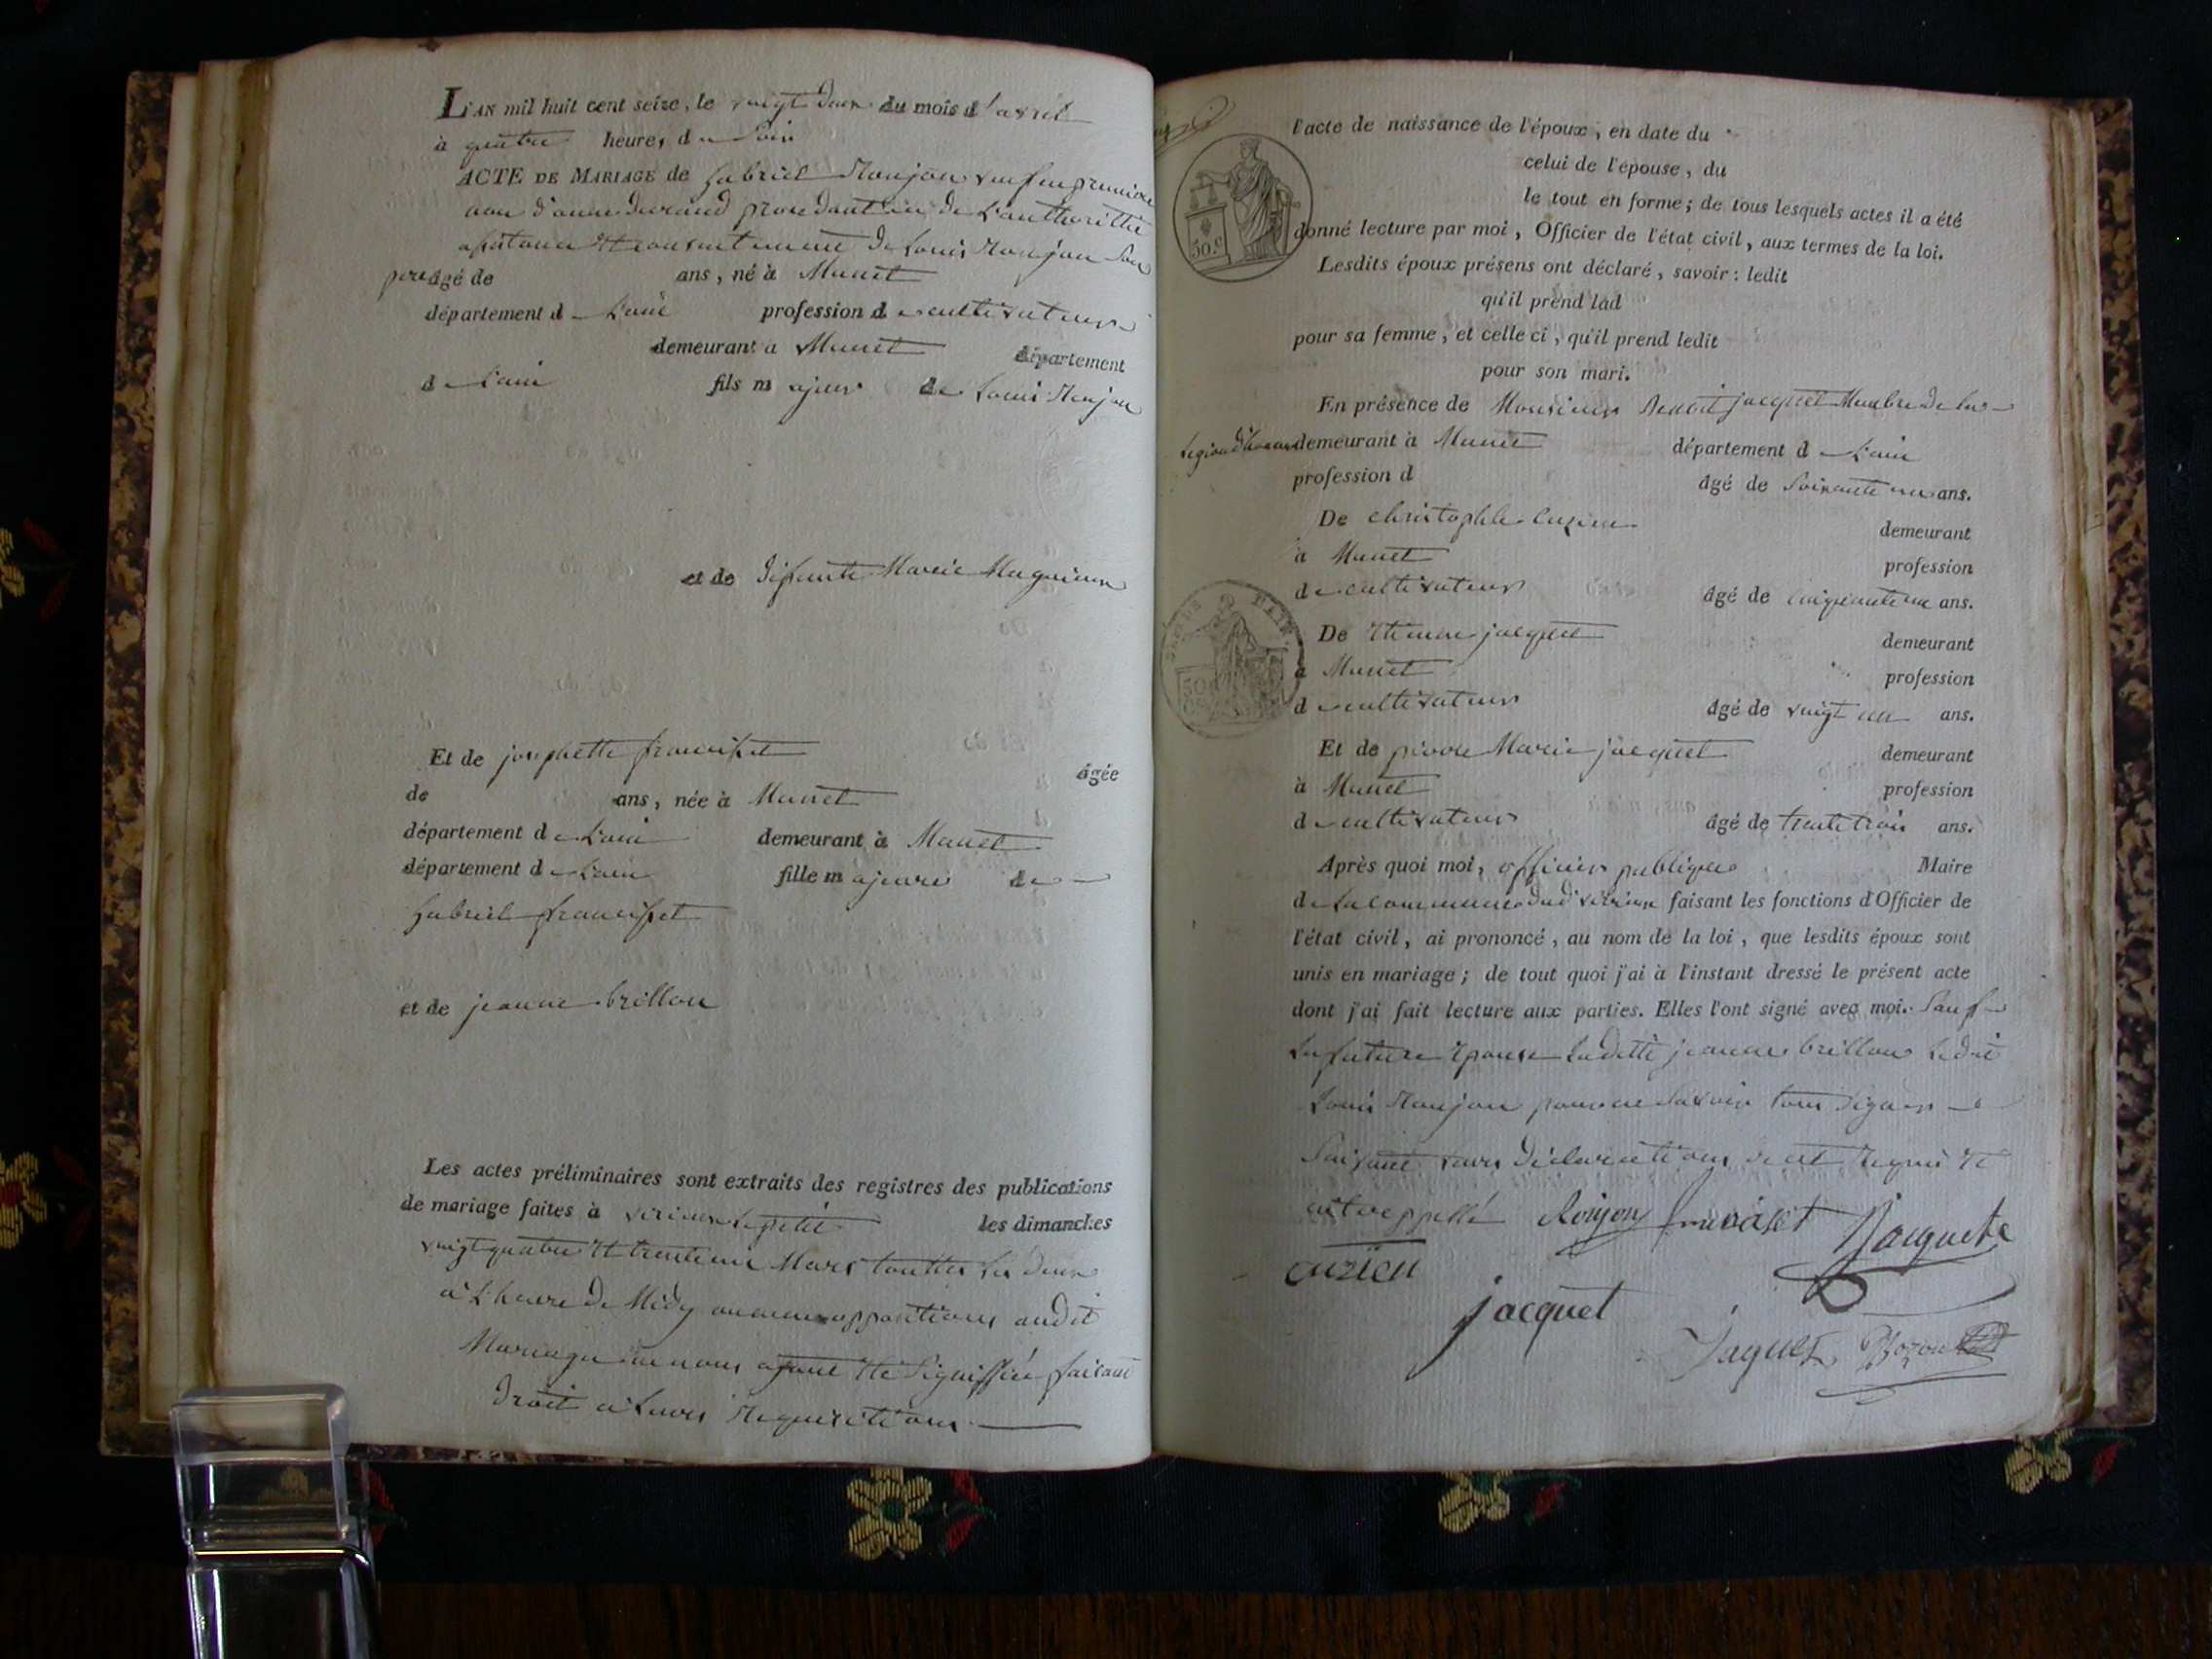 L'AN mil huit cent seize, le vingt deux du mois d'avril
à quatre heures de Soir
ACTE DE MARIAGE de Gabriel Roujon veuf en premiere
nou d'anne durand procedant de L'authoritté
assistance et consentement de Louis Roujon Son
pere âgé de ans, né à Munet
département de L'ain profession de cultivateur
demeurant à Munet département
de L'ain fils majeur de Louis Roujon
et de défunte Marie Magnieu
Et de josephette francisset âgée
de ans, née à Munet
département de L'ain demeurant à Munet
département de L'ain fille majeure de
Gabriel francisset
et de jeanne brillon
Les actes préliminaires sont extraits des registres des publications
de mariage faites à virieu le petit les dimanches
vingt quatre et trente un Mars touttes les deux
a L'heure de Midy aucune oppositions audit
Mariage ne nous ayant été Signiffiée faisant
droit a Leurs Requisitions
l'acte de naissance de l'époux, en date du
celui de l'épouse, du
le tout en forme; de tous lesquels actes il a été
donné lecture par moi, Officier de l'état civil, aux termes de la loi.
Lesdits époux présens ont déclaré, savoir: ledit
qu'il prend lad
pour sa femme, et celle ci, qu'il prend ledit
pour son mari.
En présence de Monsieur Benoit jacquet Membre de la
Legion d'honneur demeurant à Munet département de L'ain
profession d âgé de Soixante un ans.
De christophle cuzieu demeurant
à Munet profession
de cultivateur âgé de cinquante un ans.
De Etienne jacquet demeurant
à Munet profession
de cultivateur âgé de vingt un ans.
Et de pierre Marie jacquet demeurant
à Munet profession
de cultivateur âgé de trente trois ans.
Après quoi moi, officier publique Maire
de La commune dud virieu faisant les fonctions d'Officier de
l'état civil, ai prononcé, au nom de la loi, que lesdits époux sont
unis en mariage; de tout quoi j'ai à l'instant dressé le présent acte
dont j'ai fait lecture aux parties. Elles l'ont signé avec moi. Sauf
La future Epouse Laditte jeanne brillon Ledit
Louis Roujon pour ne Savoir tous Signer
Suivant Leurs déclarations de ce Requis et
Roujon francisset Jacquet
cuzieu
jacquet
Jaquet
30.C